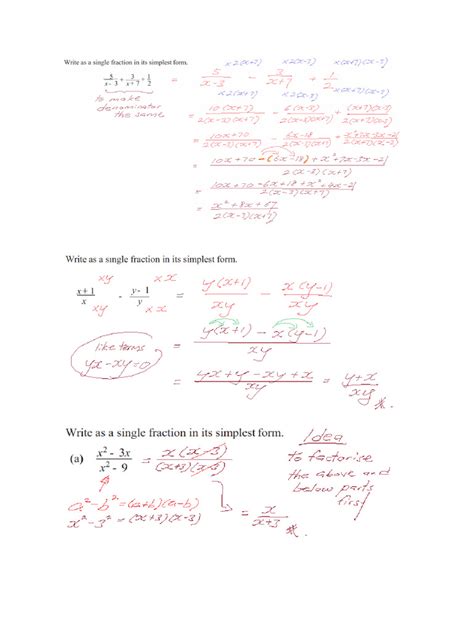 Write as a single fraction in its simplest form.
×2(x+7) ×2(x-3) ×(x+7)(x-3)
5/(x-3) + 3/(x+7) + 1/2 = 5/(x-3) - 3/(x+7) + 1/2
×2(x+7) ×2(x-3) ×(x+7)(x-3)
to make
denominator
the same
= 10(x+7)/2(x-3)(x+7) - 6(x-3)/2(x-3)(x+7) + (x+7)(x-3)/2(x+7)(x-3)
= 10x+70/2(x-3)(x+7) - 6x-18/2(x-3)(x+7) + x²+7x-3x-21/2(x+7)(x-3)
= 10x+70-(6x-18)+x²+7x-3x-21/2(x-3)(x+7)
= 10x+70-6x+18+x²+4x-21/2(x-3)(x+7)
= x²+8x+67/2(x-3)(x+7)
Write as a single fraction in its simplest form.
×y ×x
(x+1)/x - (y-1)/y = y(x+1)/xy - x(y-1)/xy
×y ×x
like terms
yx-xy=0
= y(x+1) - x(y-1)/xy
= yx+y-xy+x/xy = y+x/xy
Write as a single fraction in its simplest form.
(a) x² - 3x/x² - 9 = x(x-3)/(x+3)(x-3)
a²-b²=(a+b)(a-b)
x²-3²=(x+3)(x-3)
= x/x+3
Idea
to factorise
the above and
below parts
first